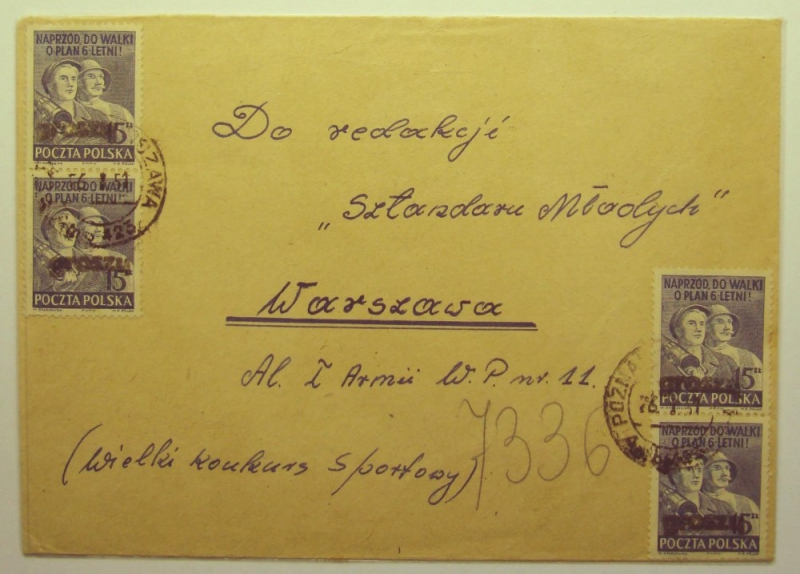 NAPRZÓD, DO WALKI
O PLAN 6-LETNI!
GROSZY
15 zł
POCZTA POLSKA
NAPRZÓD, DO WALKI
O PLAN 6-LETNI!
GROSZY
15 zł
POCZTA POLSKA
Do redakcji
„Sztandaru Młodych"
Warszawa
Al. I Armii W.P. nr. 11.
(Wielki konkurs Sportowy)
7336
NAPRZÓD, DO WALKI
O PLAN 6-LETNI!
GROSZY
15 zł
POCZTA POLSKA
POZNAŃ
NAPRZÓD, DO WALKI
O PLAN 6-LETNI!
GROSZY
15 zł
POCZTA POLSKA